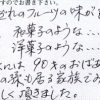 されのフルーツの味が
和菓子のような…
洋菓子のような…
には90才のおば
の孫も居る家族でみ
しく頂きました。